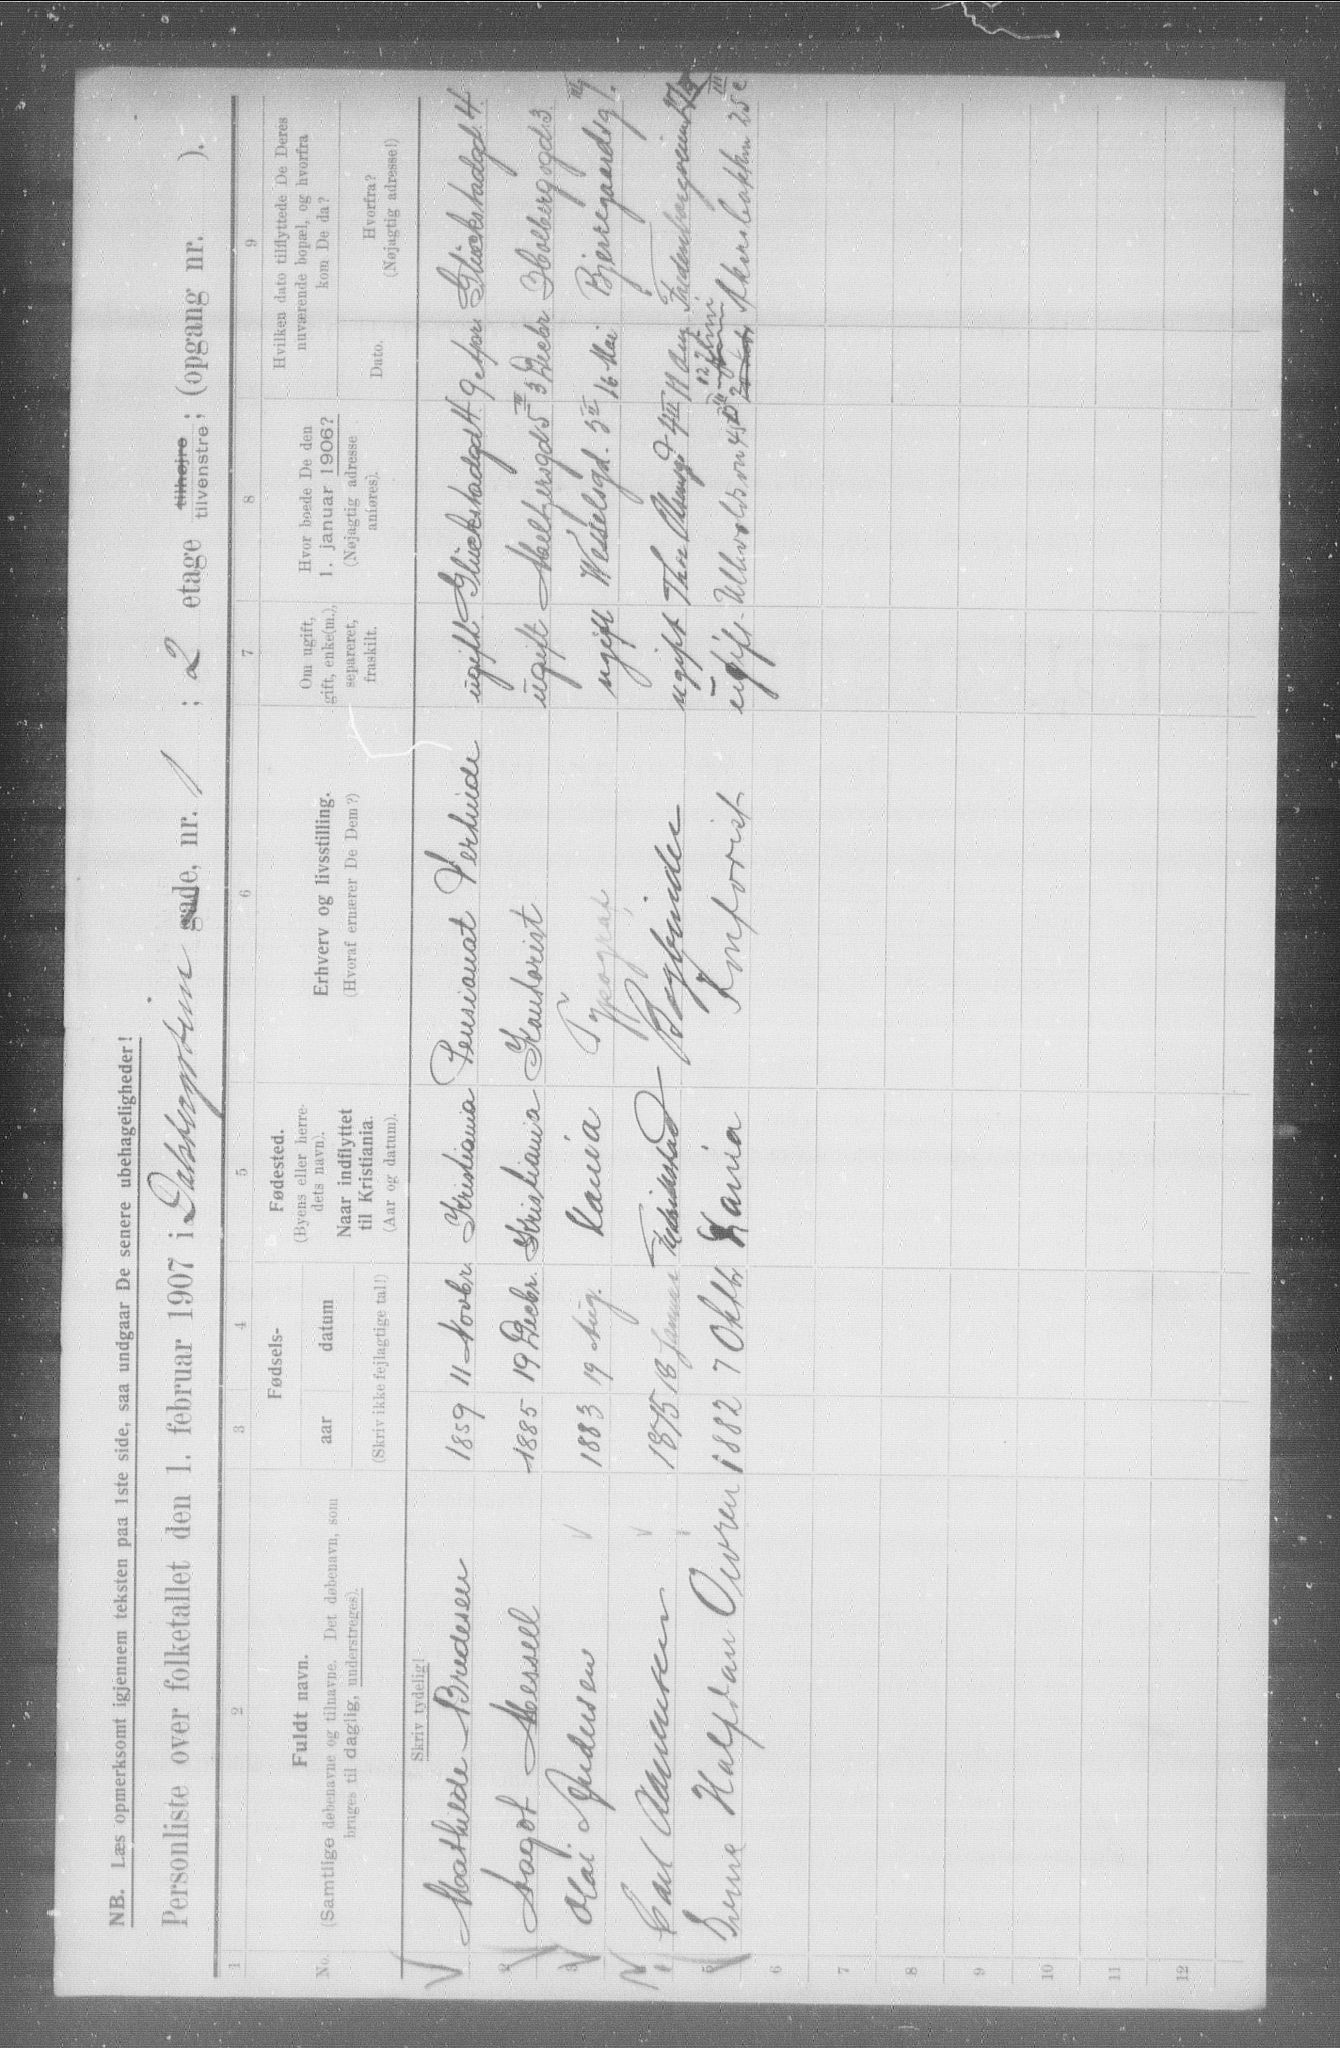 NB. Læs opmerksomt igjennem teksten paa 1ste side, saa undgaar De senere ubehageligheder!
Personliste over folketallet den 1. februar 1907 i Dalsbergstien gade, nr. 1 ; 2 etage tilhøjre tilvenstre; (opgang nr. ).
1 2 3 4 5 6 7 8 9
No.
Fuldt navn.
(Samtlige døbenavne og tilnavne. Det døbenavn, som
bruges til daglig, understreges).
Fødsels-
aar datum
(Skriv ikke fejlagtige tal!)
Fødested.
(Byens eller herre-
dets navn).
Naar indflyttet
til Kristiania.
(Aar og datum).
Erhverv og livsstilling.
(Hvoraf ernærer De Dem?)
Om ugift,
gift, enke(m.),
separeret,
fraskilt.
Hvor boede De den
1. januar 1906?
(Nøjagtig adresse
anføres).
Hvilken dato tilflyttede De Deres
nuværende bopæl, og hvorfra
kom De da?
Dato.
Hvorfra?
(Nøjagtig adresse!)
Skriv tydelig!
Mathilde Bredesen 1859 11 Novbr. Kristiania Pensionat Værtinde ugift Glückstadgd 4. 9 Apr. Glückstadgd. 4.
2 Aagot Messell 1885 19 Decbr. Kristiania Kontorist ugift Møllersgd 5 III 3 Decbr Holbergsgd. 3
3 Olai Andersen 1883 19 Aug. Kania Typograf ugift Wesselsgd. 3 II 16 Mai Bjerregaardsg 7. III
Carl Aamunsen 1875 18 Januar Fredrikstad Bogbinder ugift Thv. Meyersg 4 III 19 Aug
5 Sverre Halfdan Owren 1882 7 Oktbr Kania Kontorist ugift Ullevoldsvn 45 II 12 Juni Akersbakken 25 e III
6
7
8
9
10
11
12